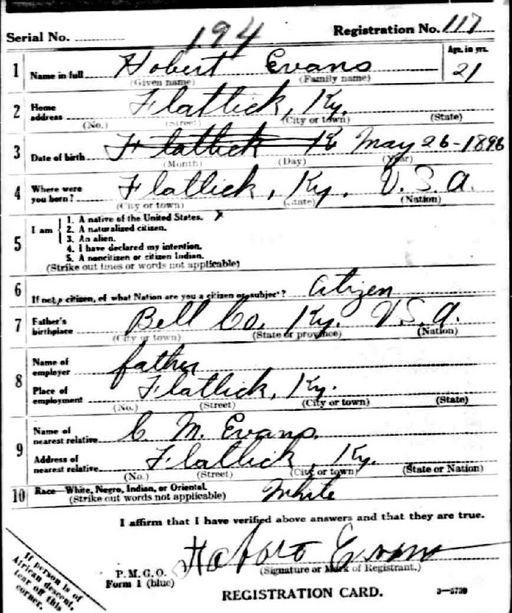 Serial No. 194 Registration No. 117
1 Name in full Hobert Evans Age, in yrs. 21
(Given name) (Family name)
2 Home address Flatlick, Ky.
(No.) (Street) (City or town) (State)
3 Date of birth Flatlick K May 26-1896
(Month) (Day) (Year)
4 Where were you born? Flatlick, Ky. U.S.A.
(City or town) (State) (Nation)
5 I am
1. A native of the United States.
2. A naturalized citizen.
3. An alien.
4. I have declared my intention.
5. A noncitizen or citizen Indian.
(Strike out lines or words not applicable)
6 If not a citizen, of what Nation are you a citizen or subject? Citizen
7 Father's birthplace Bell Co. Ky. U.S.A.
(City or town) (State or province) (Nation)
8 Name of employer father
Place of employment Flatlick, Ky.
(No.) (Street) (City or town) (State)
9 Name of nearest relative C. M. Evans
Address of nearest relative Flatlick, Ky.
(No.) (Street) (City or town) (State or Nation)
10 Race—White, Negro, Indian, or Oriental. White
(Strike out words not applicable)
I affirm that I have verified above answers and that they are true.
Evans
P. M. G. O.
Form 1 (blue)
(Signature or Mark of Registrant.)
REGISTRATION CARD. 3—5739
If person is of
African descent,
tear off this
corner.